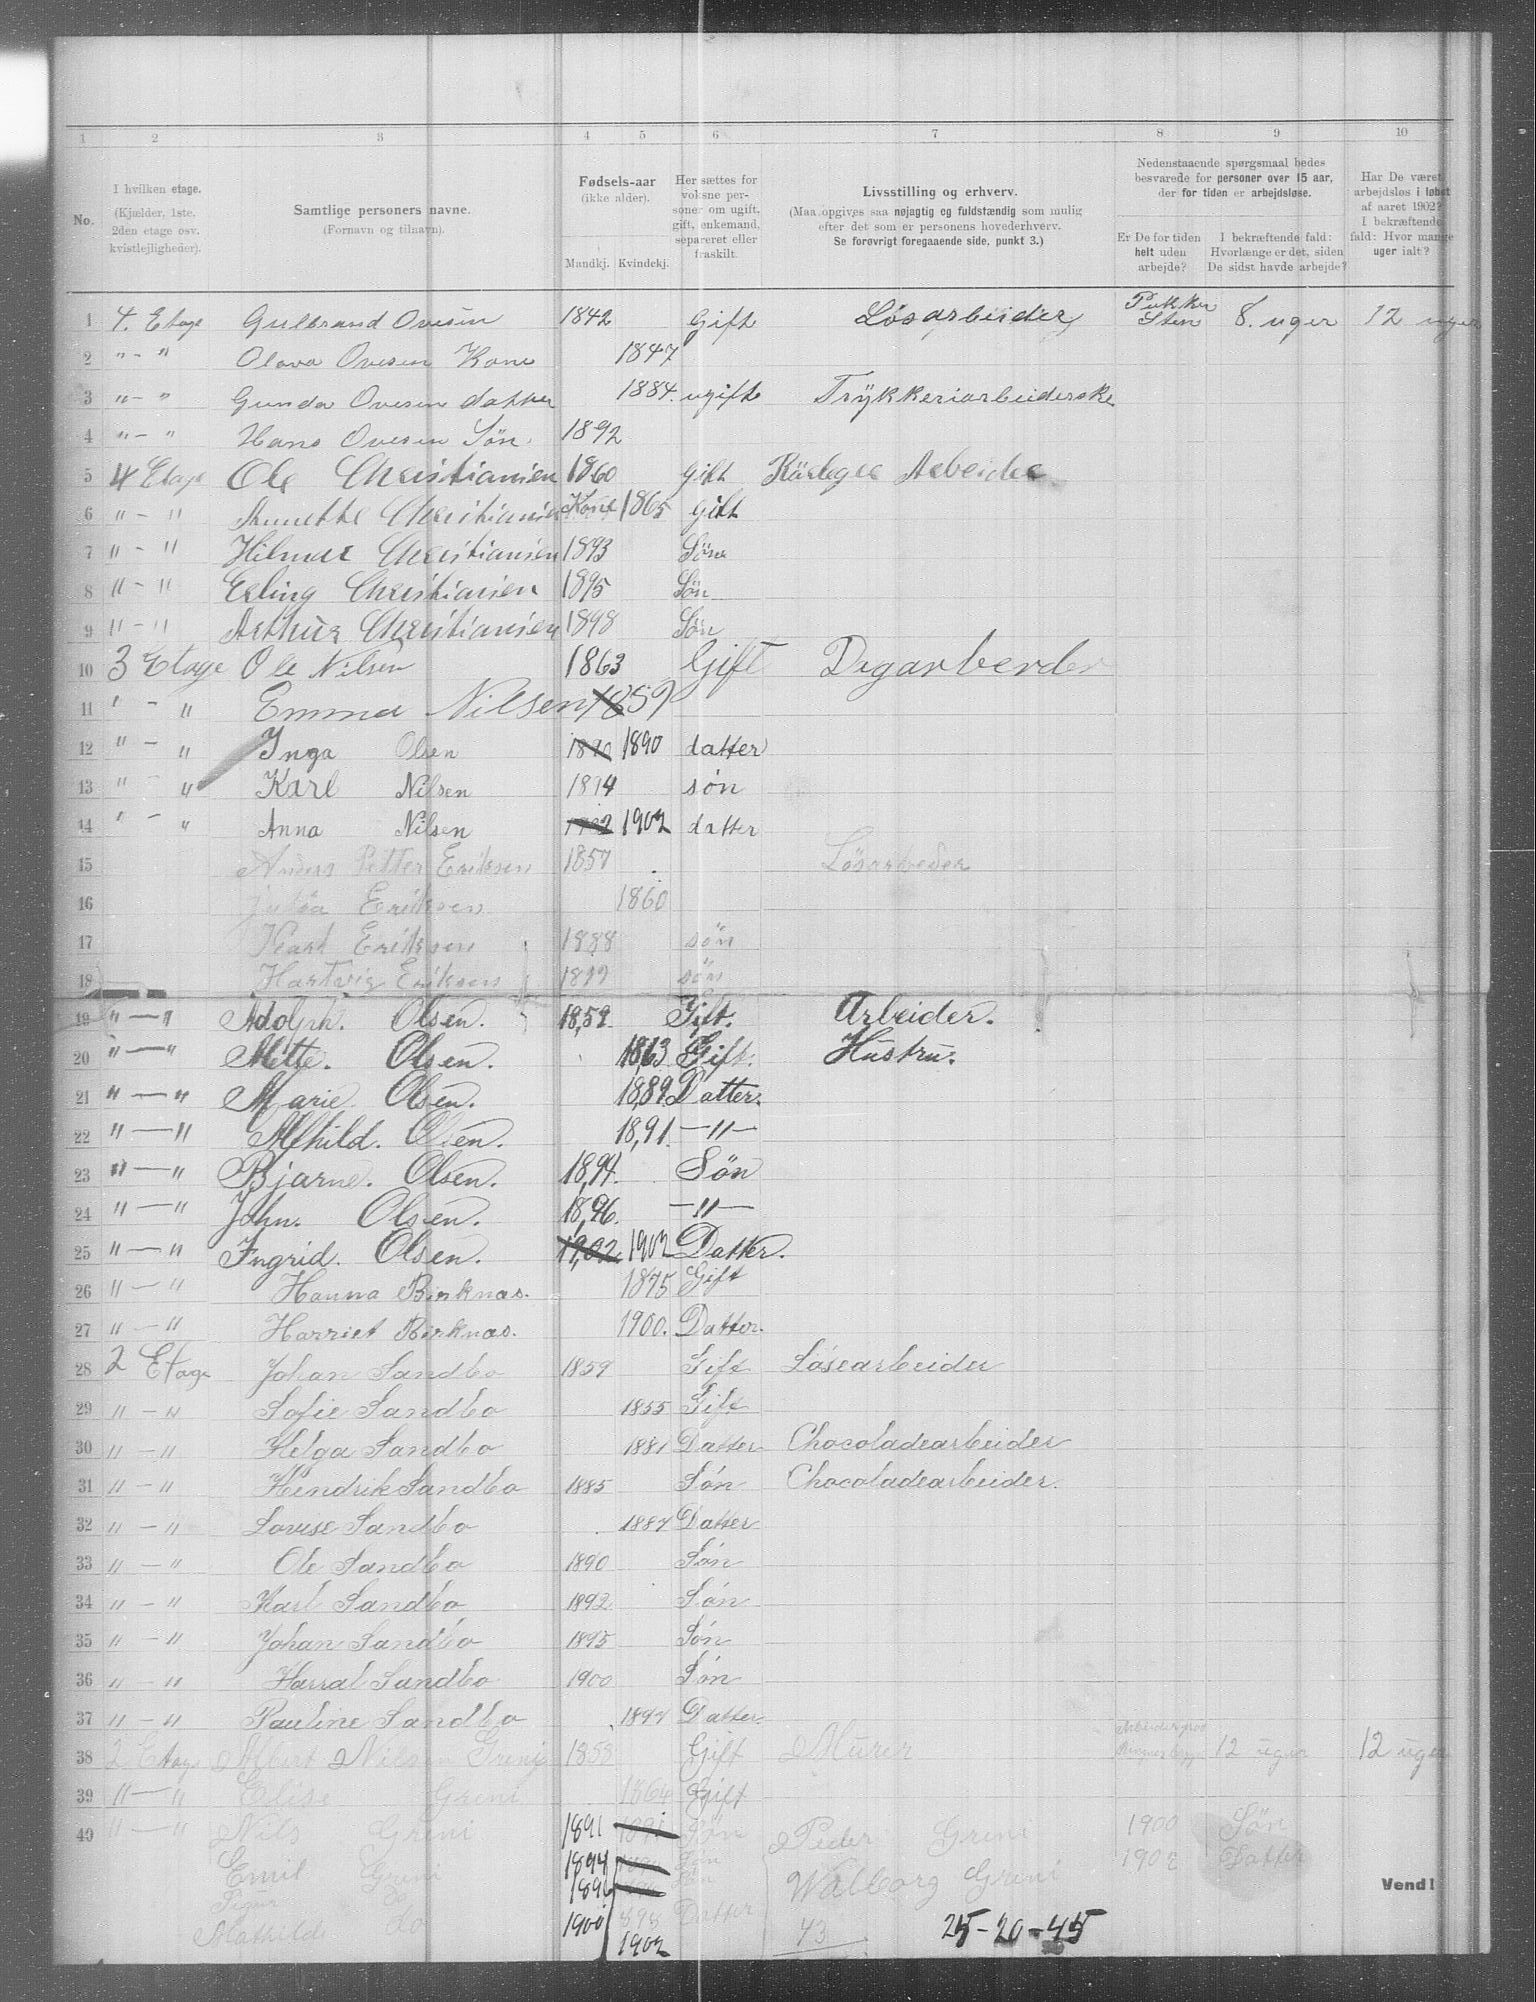 1 2 3 4 5 6 7 8 9 10
No.
I hvilken etage. (Kjælder, 1ste. 2den etage osv. kvistlejligheder).
Samtlige personers navne. (Fornavn og tilnavn).
Fødsels-aar (ikke alder). Mandkj. Kvindekj.
Her sættes for voksne personer om ugift, gift, enkemand, separeret eller fraskilt.
Livsstilling og erhverv. (Maa opgives saa nøjagtig og fuldstændig som mulig efter det som er personens hovederhverv. Se forøvrigt foregaaende side, punkt 3.)
Nedenstaaende spørgsmaal bedes besvarede for personer over 15 aar, der for tiden er arbejdsløse.
Er De for tiden helt uden arbejde?
I bekræftende fald: Hvorlænge er det, siden De sidst havde arbejde?
Har De været arbejdsløs i løbet af aaret 1902? I bekræftende fald: Hvor mange uger ialt?
1 4. Etage Gulbrand Ovesen 1842 Gift Løsarbeider Pukker Sten 8. uger 12 uger
2 "-" Olava Ovesen Kone 1847
3 "-" Gunda Ovesen datter 1884. ugift Trykkeriarbeiderske
4 "-" Hans Ovesen Søn. 1892
5 4 Etage Ole Christiansen 1860 Gift Arbeider
6 "-" Christiansen Kone 1865 Gift
7 "-" Hilmar Christiansen 1893 Søn
8 "-" Erling Christiansen 1895 Søn
9 "-" Arthur Christiansen 1898 Søn
10 3 Etage Ole Nilsen 1863 Gift Dagarbeider
11 "-" Emma Nilsen 1859
12 "-" Inga Olsen 1890 1890 datter
13 "-" Karl Nilsen 1894 søn
14 "-" Anna Nilsen 1902 1902 datter
15 Anders Petter Eriksen 1857 Løsarbeder
16 Eriksen 1860
17 Karl Eriksen 1888 søn
18 Hartvig Eriksen søn
19 "-" Adolph. Olsen. 1859. Gift. Arbeider.
20 "-" Mette. Olsen. 1863 Gift. Hustru.
21 "-" Marie. Olsen. 1889. Datter.
22 "-" Alfhild. Olsen. 1891. -"-
23 "-" Bjarne. Olsen. 1894. Søn
24 "-" John. Olsen. 1896. -"-
25 "-" Ingrid. Olsen. 1902. 1902 Datter.
26 "-" Hanna Birknas. 1875 Gift
27 "-" Harriet Birknas. 1900. Datter.
28 2 Etage Johan Sandbo 1859 Gift Løsearbeider
29 "-" Sofie Sandbo 1855 Gift
30 "-" Helga Sandbo 1881 Datter Chocoladearbeider
31 "-" Hendrik Sandbo 1885 Søn Chocoladearbeider.
32 "-" Lovise Sandbo 1887 Datter
33 "-" Ole Sandbo 1890 Søn
34 "-" Karl Sandbo 1892 Søn
35 "-" Johan Sandbo 1895 Søn
36 "-" Harral Sandbo 1900 Søn
37 "-" Pauline Sandbo 1897 Datter.
38 2 Etage Albert Nilsen Greni 1858 Gift Murer 12 uger 12 uger
39 "-" Elise Greni 1864 Gift
40 "-" Nils Greni 1891 1891 Søn Peder Greni 1900 Søn
Emil Greni 1894 Søn Walborg Greni 1902 Datter
Sigur do 1896 Søn
Vend!
Mathilde do 1900 1898 Datter 43 25-20-45
1902